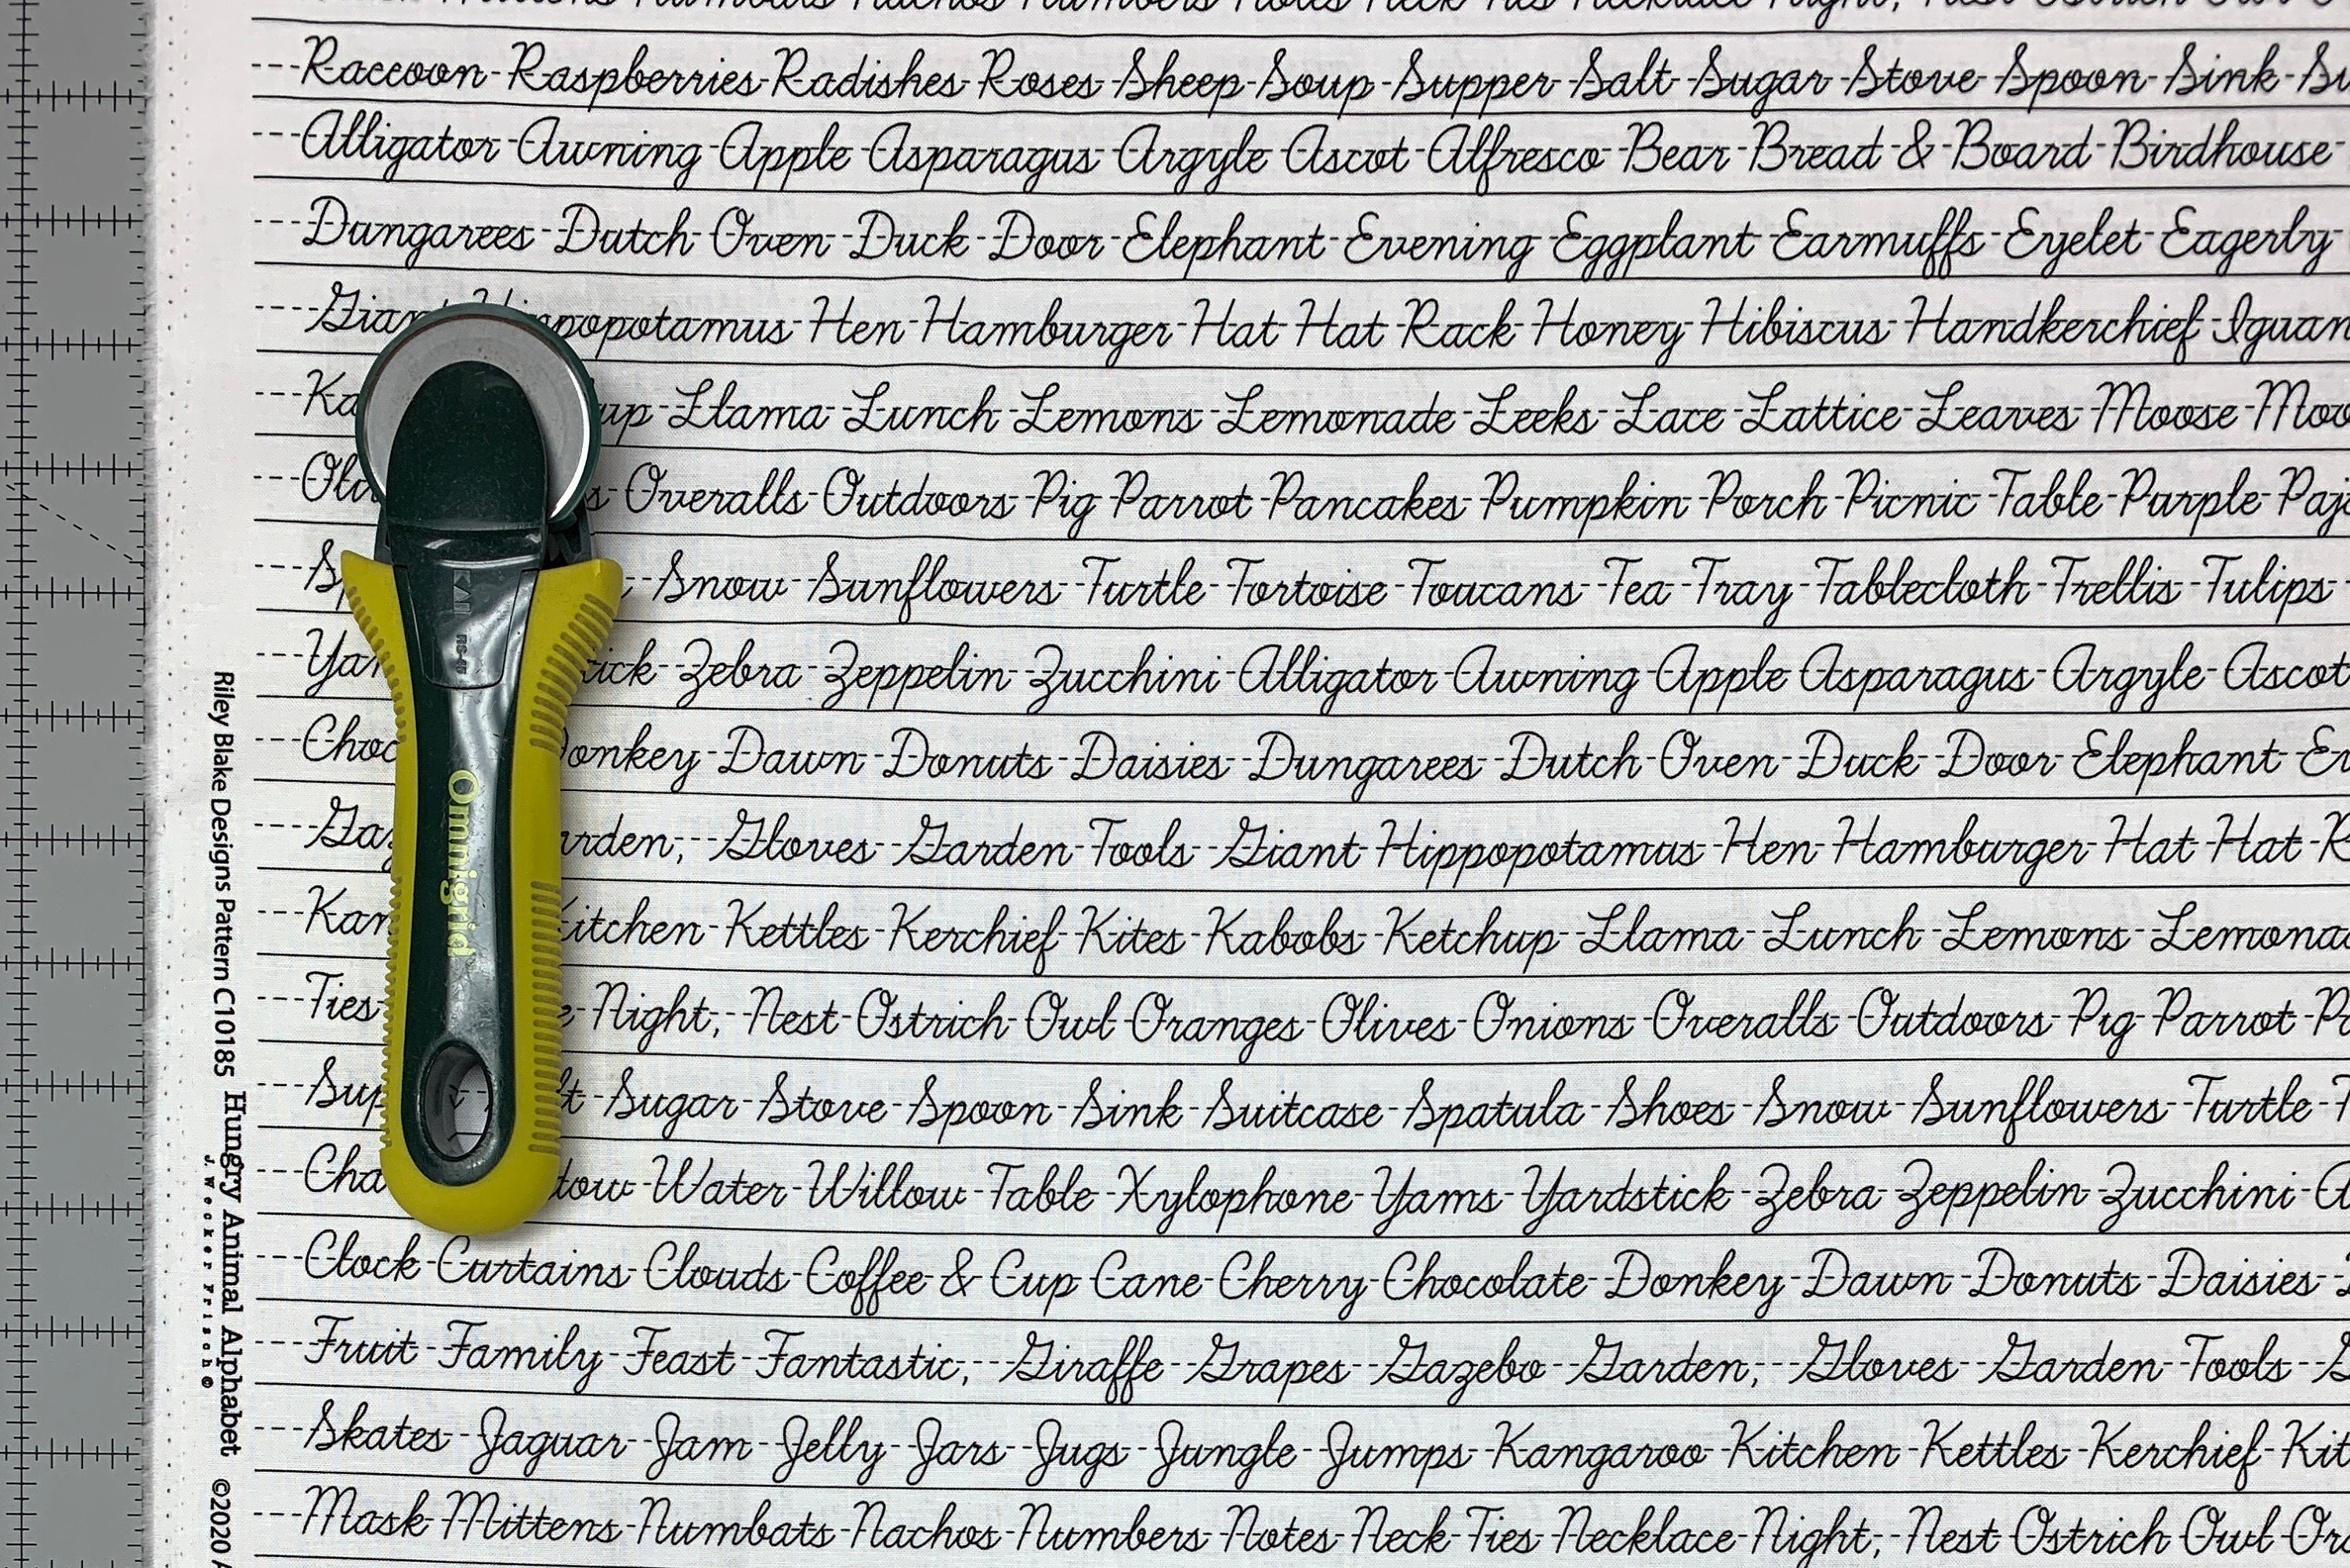 Mittens Numbats Nachos Numbers Notes Neck Ties Necklace Night, Nest Ostrich Owl
Raccoon Raspberries Radishes Roses Sheep Soup Supper Salt Sugar Stove Spoon Sink
Alligator Awning Apple Asparagus Argyle Ascot Alfresco Bear Bread & Board Birdhouse
Dungarees Dutch Oven Duck Door Elephant Evening Eggplant Earmuffs Eyelet Eagerly
Hen Hamburger Hat Hat Rack Honey Hibiscus Handkerchief
Llama Lunch Lemons Lemonade Leeks Lace Lattice Leaves Moose
Overalls Outdoors Pig Parrot Pancakes Pumpkin Porch Picnic Table Purple
Snow Sunflowers Turtle Tortoise Toucans Tea Tray Tablecloth Trellis Tulips
Zebra Zeppelin Zucchini Alligator Awning Apple Asparagus Argyle Ascot
Dawn Donuts Daisies Dungarees Dutch Oven Duck Door Elephant
Gloves Garden Tools Giant Hippopotamus Hen Hamburger Hat Hat
Kitchen Kettles Kerchief Kites Kabobs Ketchup Llama Lunch Lemons
Ties Night, Nest Ostrich Owl Oranges Olives Onions Overalls Outdoors Pig Parrot
Sugar Stove Spoon Sink Suitcase Spatula Shoes Snow Sunflowers Turtle
Water Willow Table Xylophone Yams Yardstick Zebra Zeppelin Zucchini
Clock Curtains Clouds Coffee & Cup Cane Cherry Chocolate Donkey Dawn Donuts Daisies
Fruit Family Feast Fantastic, Giraffe Grapes Gazebo Garden, Gloves Garden Tools
Skates Jaguar Jam Jelly Jars Jugs Jungle Jumps Kangaroo Kitchen Kettles Kerchief
Mask Mittens Numbats Nachos Numbers Notes Neck Ties Necklace Night, Nest Ostrich Owl
Riley Blake Designs Pattern C10185 Hungry Animal Alphabet ©2020
J. Wecker Frisch ©
KAI
Omnigrid